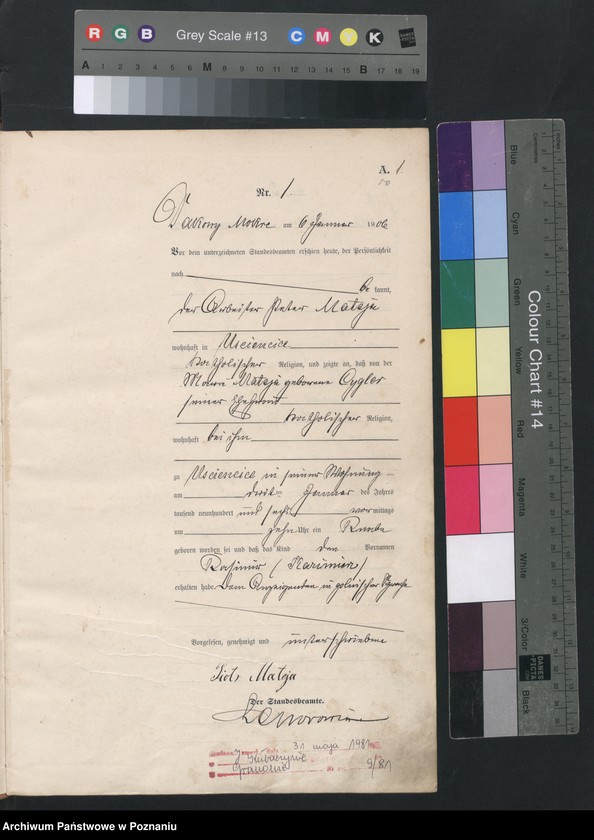 R G B Grey Scale #13 C M Y K DANES PICTA
A 1 2 3 4 5 6 M 8 9 10 11 12 13 14 15 B 17 18 19
A. 1
Nr. 1
Mokre am 6 Januar 1906
Vor dem unterzeichneten Standesbeamten erschien heute, der Persönlichkeit
nach
be kannt,
der Arbeiter Peter Mataja
wohnhaft in Usciencice
katholischer Religion, und zeigte an, daß von der
Maria Mataja geborene Cygler
seiner Ehefrau
katholischer Religion,
wohnhaft bei ihm
zu Usciencice in seiner Wohnung
am drit ten Januar des Jahres
tausend neunhundert und sechs vor mittags
um zehn Uhr ein Knabe
geboren worden sei und daß das Kind den Vornamen
Kasimir (Kazimierz)
erhalten habe. Dem Anzeigenden in polnischer Sprache
Vorgelesen, genehmigt und unterschrieben
Piotr Mataja
Der Standesbeamte.
31 maja 1981
9/81
Colour Chart #14
Blue
Cyan
Green
Yellow
Red
Magenta
White
3/Color
Black
DANES PICTA
Centimetres
Archiwum Państwowe w Poznaniu